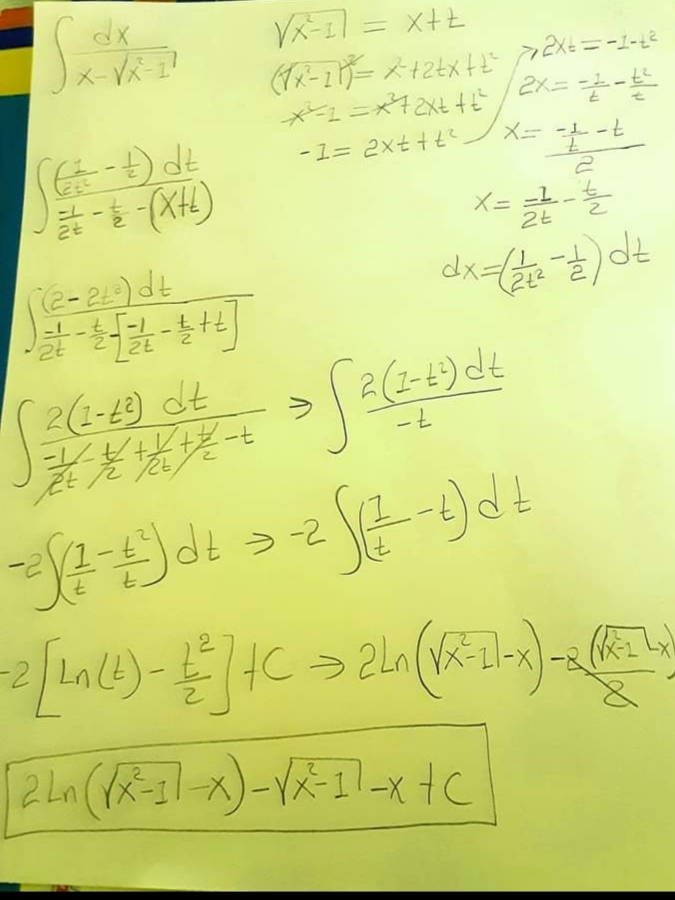 ∫ dx / (x-√(x²-1))
√(x²-1) = x+t
(√(x²-1))² = x²+2tx+t²
x²-1 = x²+2xt+t²
-1 = 2xt+t²
2xt = -1-t²
2x = -1/t - t²/t
x = (-1/t - t)/2
x = -1/2t - t/2
dx = (1/2t² - 1/2) dt
∫ (1/2t² - 1/2) dt / (-1/2t - t/2 - (x+t))
∫ (2-2t²) dt / (-1/2t - t/2 - [-1/2t - t/2 + t])
∫ 2(1-t²) dt / (-1/2t - t/2 + 1/2t + t/2 - t) ⇒ ∫ 2(1-t²) dt / -t
-2∫(1/t - t²/t) dt ⇒ -2∫(1/t - t) dt
-2[Ln(t) - t²/2] + C ⇒ 2Ln(√(x²-1) - x) - 2(√(x²-1) - x)/2
2Ln(√(x²-1) - x) - √(x²-1) - x + C